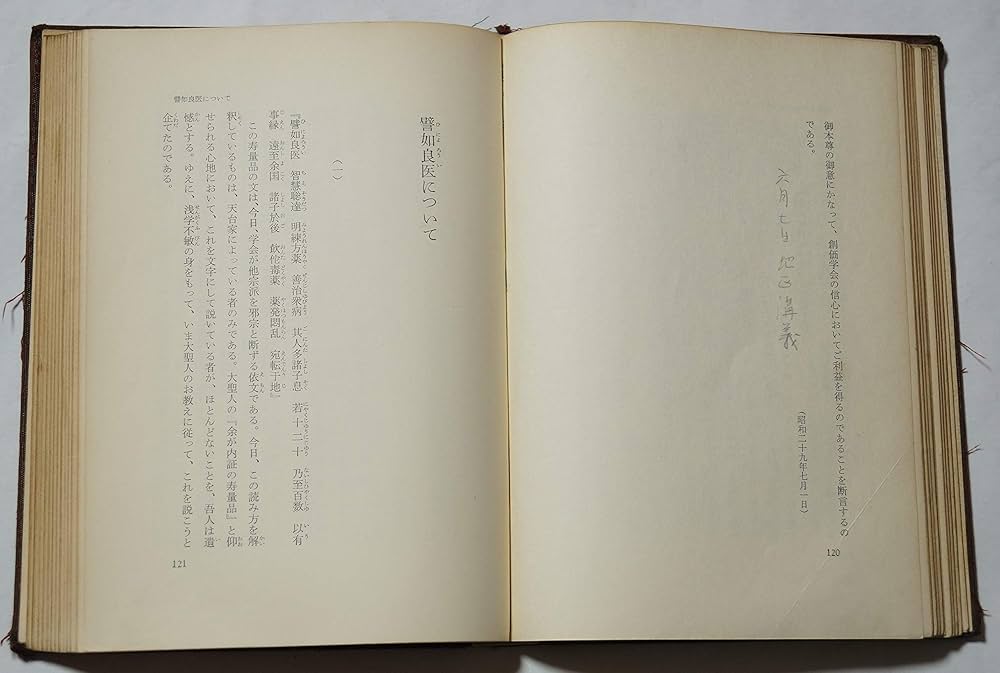 御本尊の御意にかなって、創価学会の信心においてご利益を得るのであることを断言するの
である。
六月七日 地区講義
(昭和二十九年七月一日)
120
譬如良医について
(一)
『譬如良医 智慧聡達 明練方薬 善治衆病 其人多諸子息 若十二十 乃至百数 以有
事縁 遠至余国 諸子於後 飲佗毒薬 薬発悶乱 宛転于地』
この寿量品の文は、今日、学会が他宗派を邪宗と断ずる依文である。今日、この読み方を解
釈しているものは、天台家によっている者のみである。大聖人の『余が内証の寿量品』と仰
せられる心地において、これを文字にして説いている者が、ほとんどないことを、吾人は遺
憾とする。ゆえに、浅学不敏の身をもって、いま大聖人のお教えに従って、これを説こうと
企てたのである。
譬如良医について
121